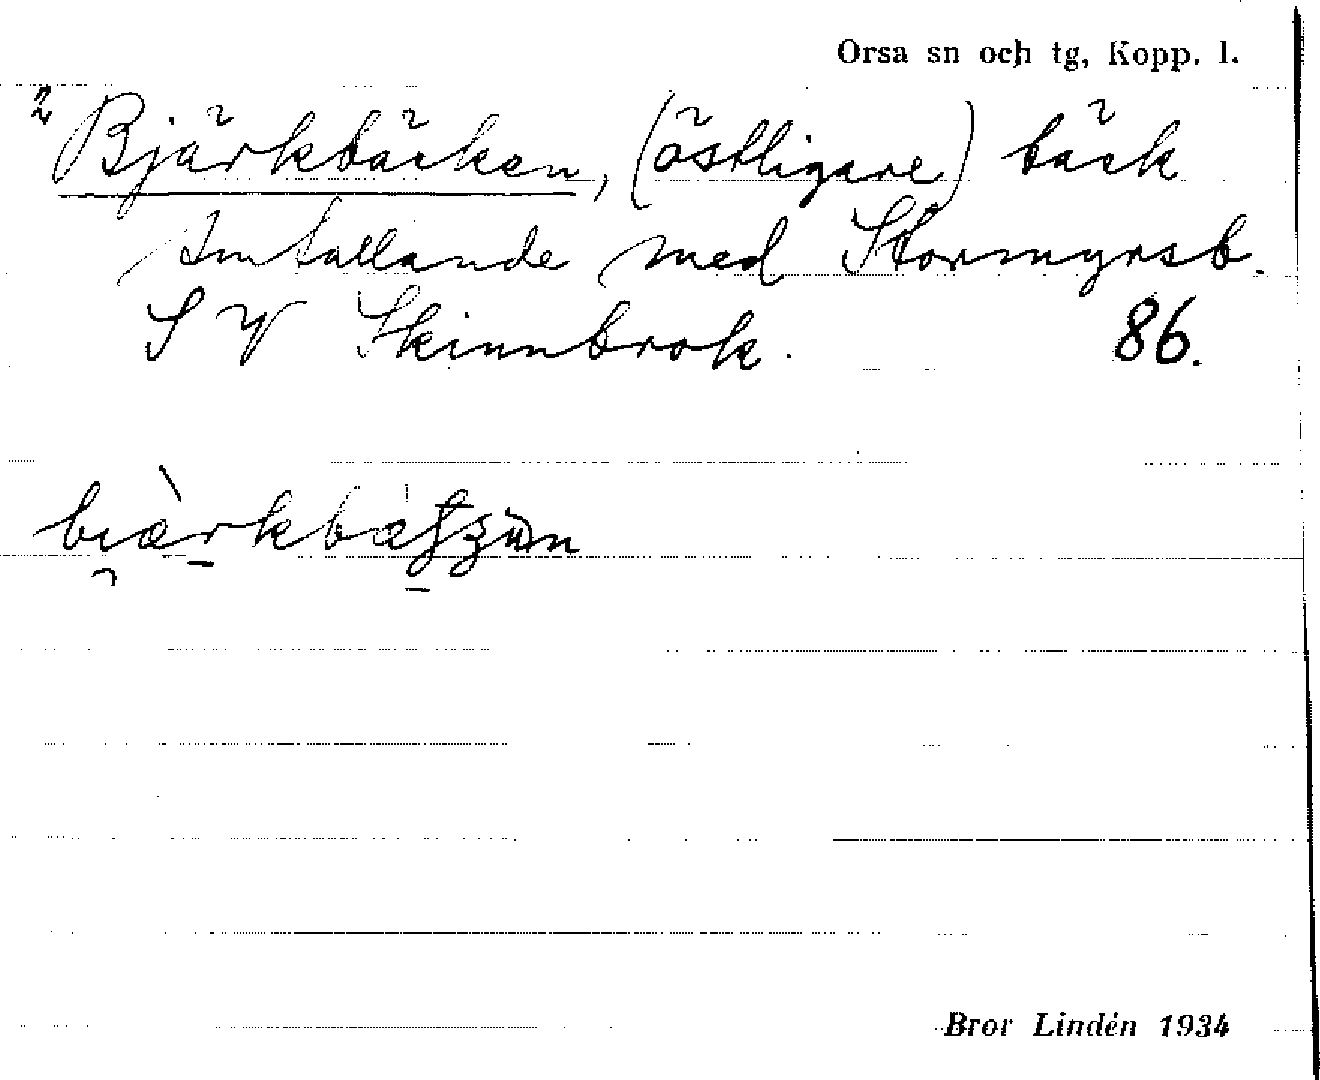 Orsa sn och tg, Kopp. l.
2 Bjärkbäcken, (östligare) bäck
smfallande med Stormyrsb.
SV Skinnbrok. 86.
Bror Lindén 1934